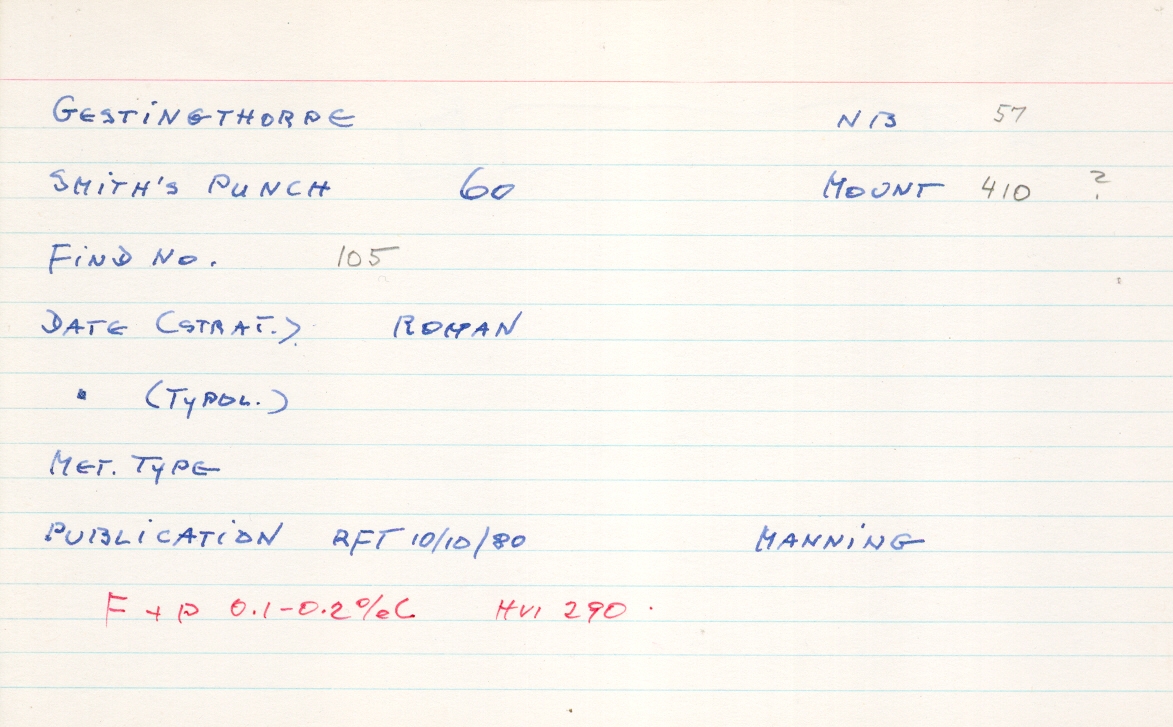 GESTiNGTHORPE NB 57
SMiTH'S PUNCH 60 MOUNT 410 ?
FiND No. 105
DATE (STRAT.) ROMAN
" (TYPOL.)
MET. TYPE
PUBLiCATiON RFT 10/10/80 MANNiNG
F + P 0.1-0.2%C HV1 290.